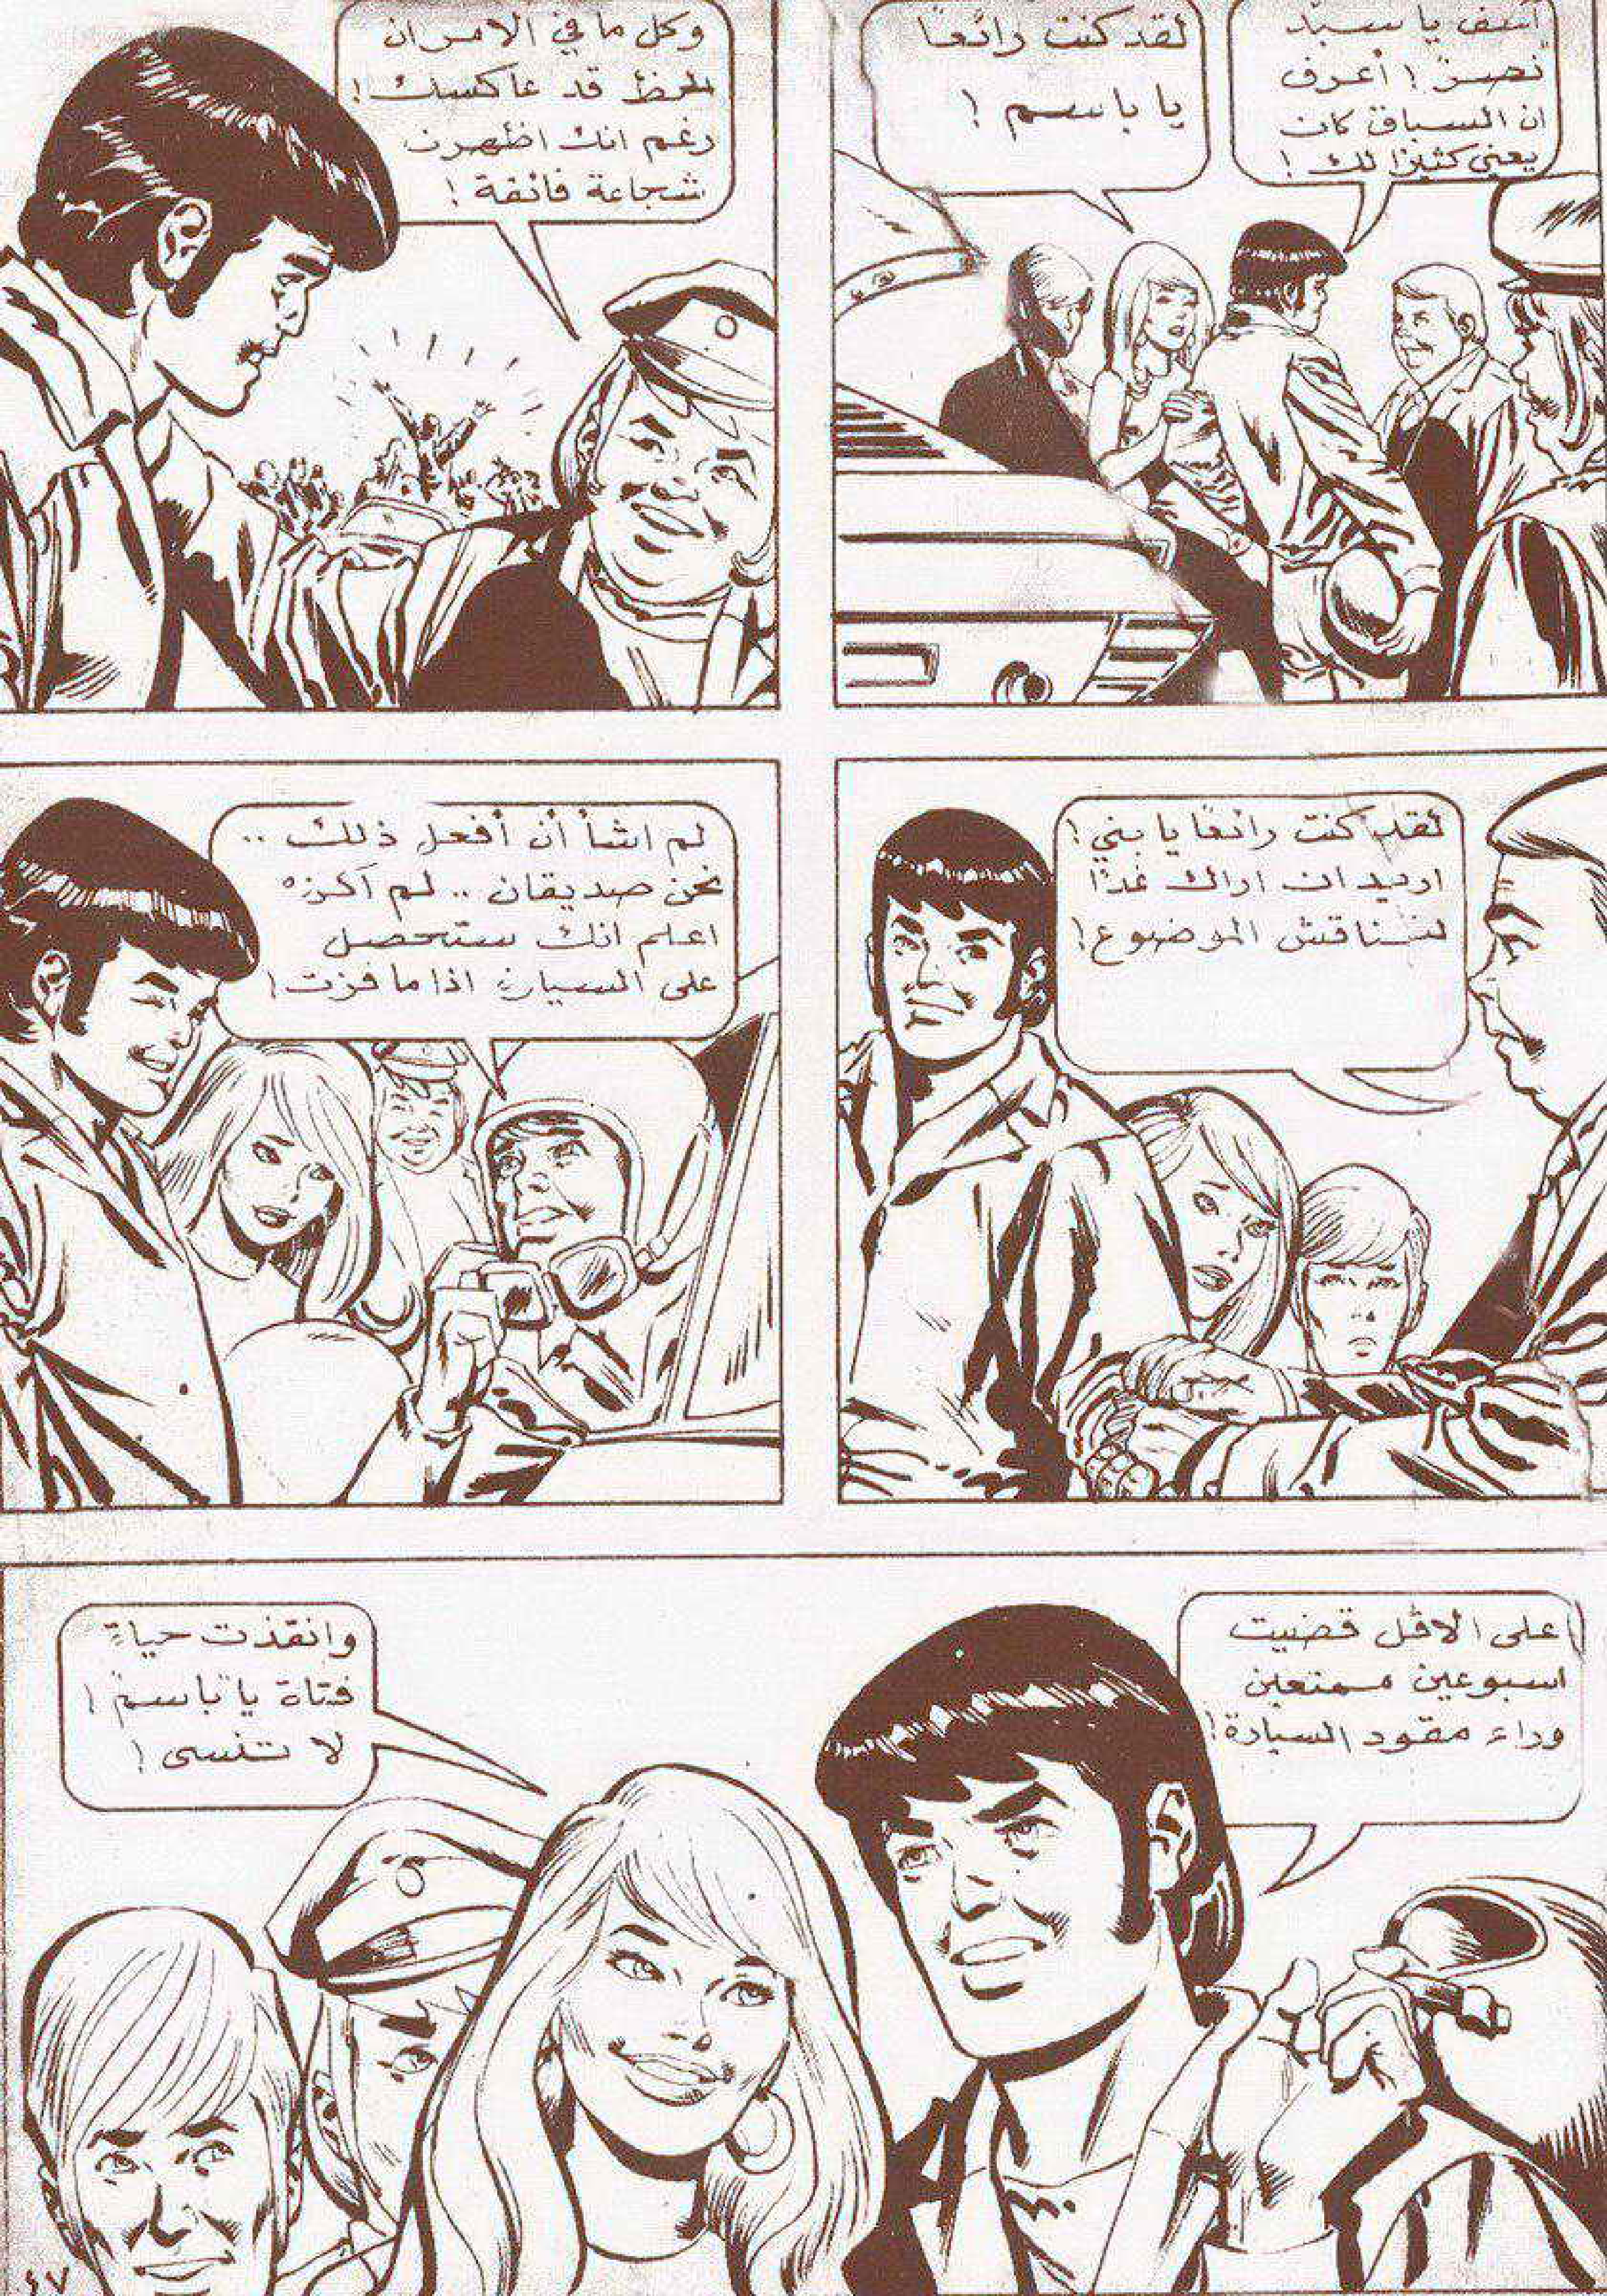 آسف يا سيد
نصر! أعرف
ان السباق كان
يعني كثيرًا لك!
لقد كنت رائعًا
يا باسم!
وكل ما في الامر ان
الحظ قد عاكسك!
رغم انك اظهرت
شجاعة فائقة!
لقد كنت رائعًا يا بني!
اريد ان اراك غدًا
لنتناقش الموضوع!
لم اشأ أن أفعل ذلك ..
نحن صديقان .. لم أكن
اعلم انك ستحصل
على السيارة اذا ما فزت!
على الاقل قضيت
اسبوعين ممتعين
وراء مقود السيارة!
وانقذت حياة
فتاة يا باسم!
لا تنسى!
٤٧